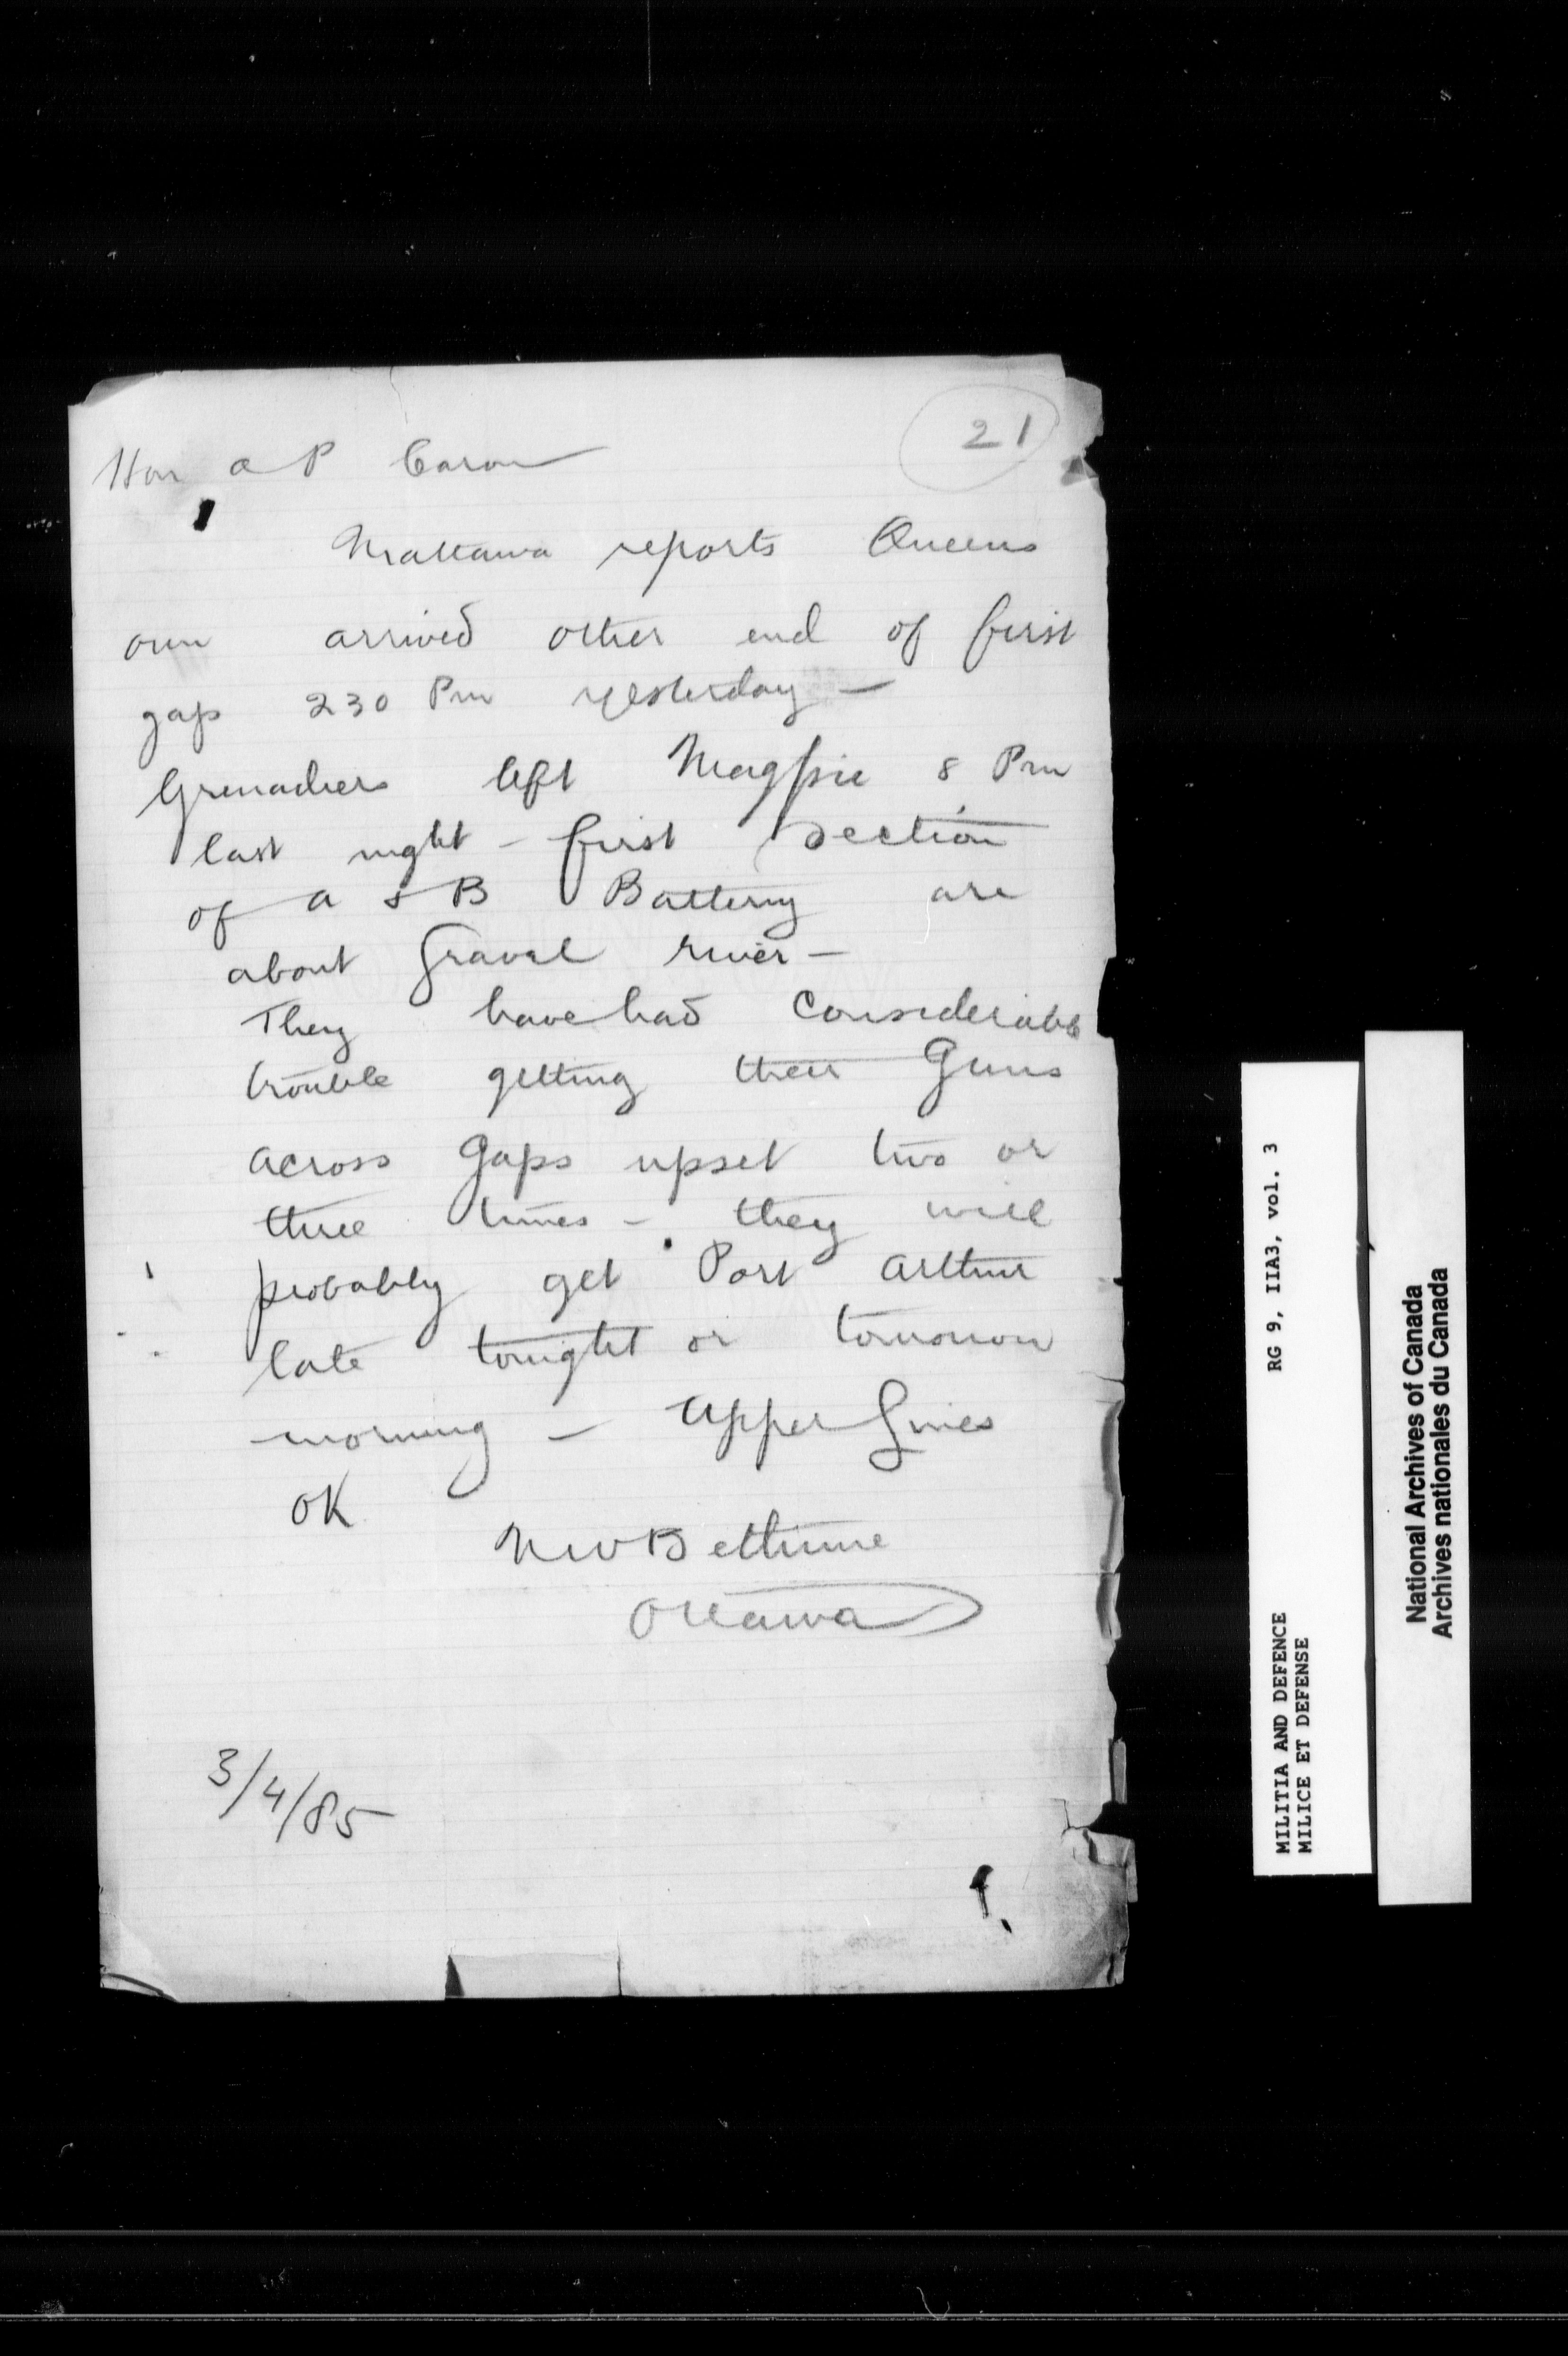 21
Hon A P Caron
Mattawa reports Queens
own arrived other end of first
gap 230 Pm yesterday —
Grenadiers left Magpie 8 Pm
last night – first section
of A & B Battery are
about Gravel river —
They have had considerable
trouble getting their Guns
across Gaps upset two or
three times – they will
probably get Port Arthur
late tonight or tomorrow
morning — Upper Lines
OK
N W Bethune
Ottawa
3/4/85
RG 9, IIA3, vol. 3
MILITIA AND DEFENCE
MILICE ET DEFENSE
National Archives of Canada
Archives nationales du Canada